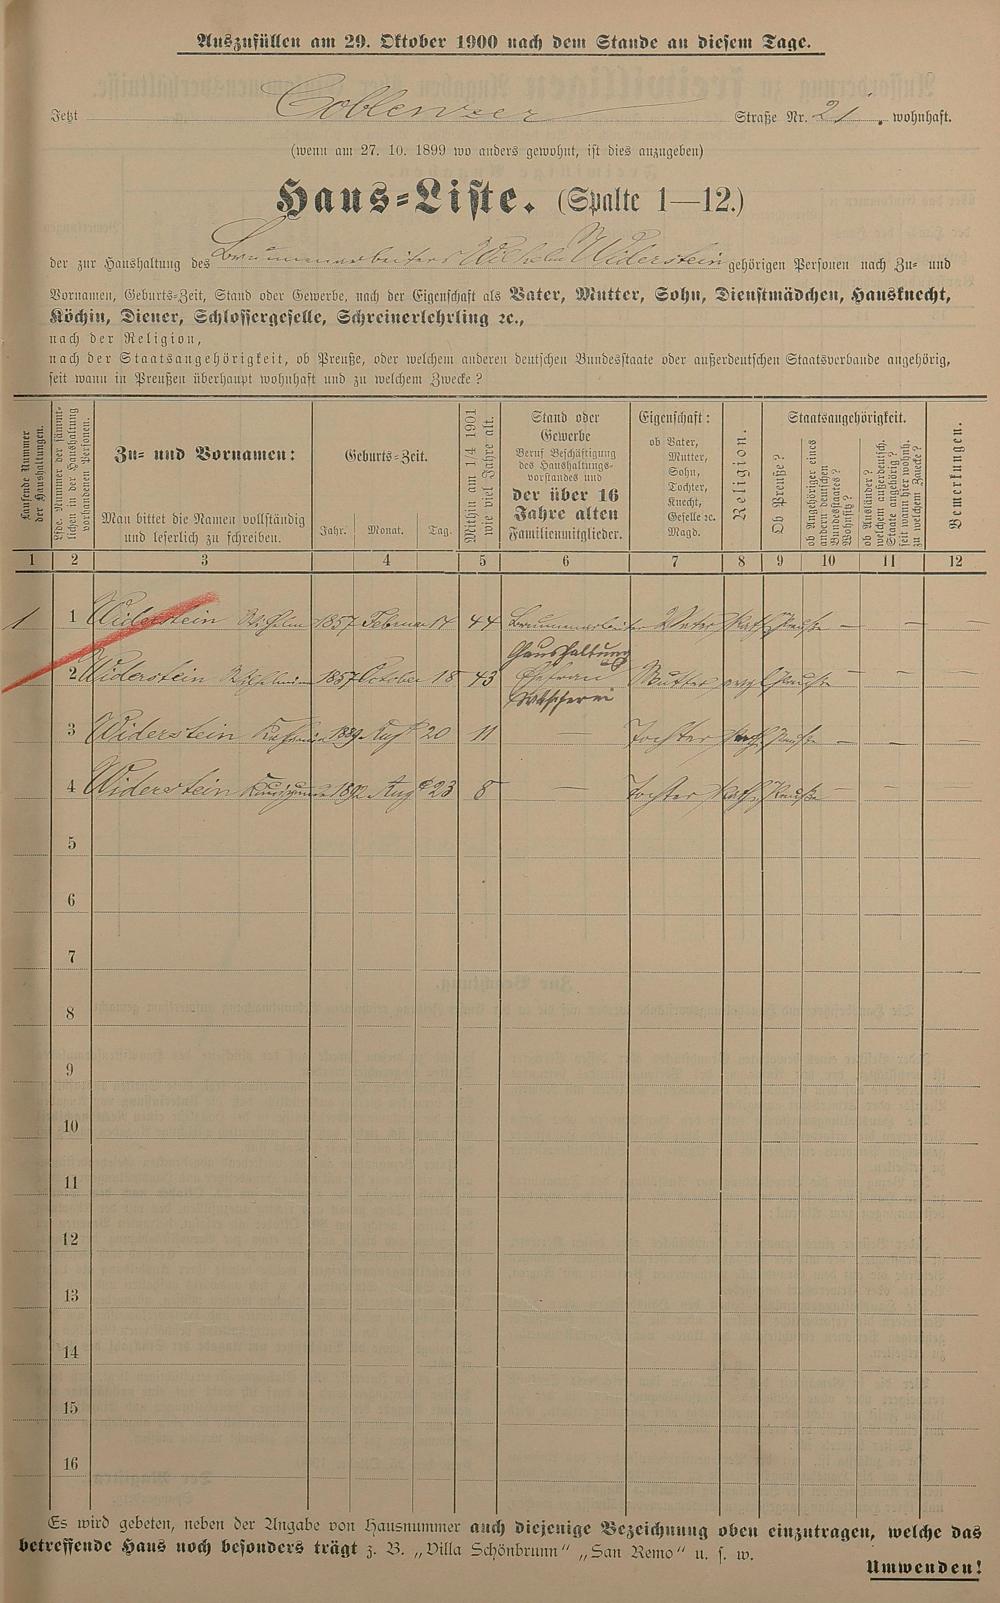 Auszufüllen am 29. Oktober 1900 nach dem Stande an diesem Tage.
Jetzt Coblenzer Straße Nr. 21. wohnhaft.
(wenn am 27. 10. 1899 wo anders gewohnt, ist dies anzugeben)
Haus-Liste. (Spalte 1—12.)
der zur Haushaltung des Brunnenarbeiters Wilhelm Widerstein gehörigen Personen nach Zu- und
Vornamen, Geburts-Zeit, Stand oder Gewerbe, nach der Eigenschaft als Vater, Mutter, Sohn, Dienstmädchen, Hausknecht,
Köchin, Diener, Schlossergeselle, Schreinerlehrling ꝛc.,
nach der Religion,
nach der Staatsangehörigkeit, ob Preuße, oder welchem anderen deutschen Bundesstaate oder außerdeutschen Staatsverbande angehörig,
seit wann in Preußen überhaupt wohnhaft und zu welchem Zwecke?
Laufende Nummer
der Haushaltungen.
Lfde. Nummer der sämmt-
lichen in der Haushaltung
vorhandenen Personen.
Zu- und Vornamen:
Man bittet die Namen vollständig
und leserlich zu schreiben.
Geburts-Zeit.
Jahr. Monat. Tag.
Mithin am 1/4 1901
wie viel Jahre alt.
Stand oder
Gewerbe
Beruf Beschäftigung
des Haushaltungs-
vorstandes und
der über 16
Jahre alten
Familienmitglieder.
Eigenschaft:
ob Vater,
Mutter,
Sohn,
Tochter,
Knecht,
Geselle ꝛc.
Magd.
Religion.
Staatsangehörigkeit.
Ob Preuße?
ob Angehöriger eines
andern deutschen
Bundesstaates?
Wohnsitz?
ob Ausländer?
welchem außerdeutsch.
Staate angehörig?
seit wann hier wohnh.
zu welchem Zwecke?
Bemerkungen.
1 2 3 4 5 6 7 8 9 10 11 12
1 1 Widerstein Wilhelm 1857 Februar 14 44 Brunnenarbeiter Vater kath. Preuße — — —
Haushaltung
2 Widerstein Wilhelmine 1857 October 18 43 Ehefrau Mutter evgl Preuße — — —
Wäscherei
3 Widerstein Katharina 1889 Aug 20 11 — Tochter kath. Preuße — — —
4 Widerstein 1892 Aug 23 8 — Tochter kath. Preuße — — —
5
6
7
8
9
10
11
12
13
14
15
16
Es wird gebeten, neben der Angabe von Hausnummer auch diejenige Bezeichnung oben einzutragen, welche das
betreffende Haus noch besonders trägt z. B. „Villa Schönbrunn“ „San Remo“ u. s. w.
Umwenden!